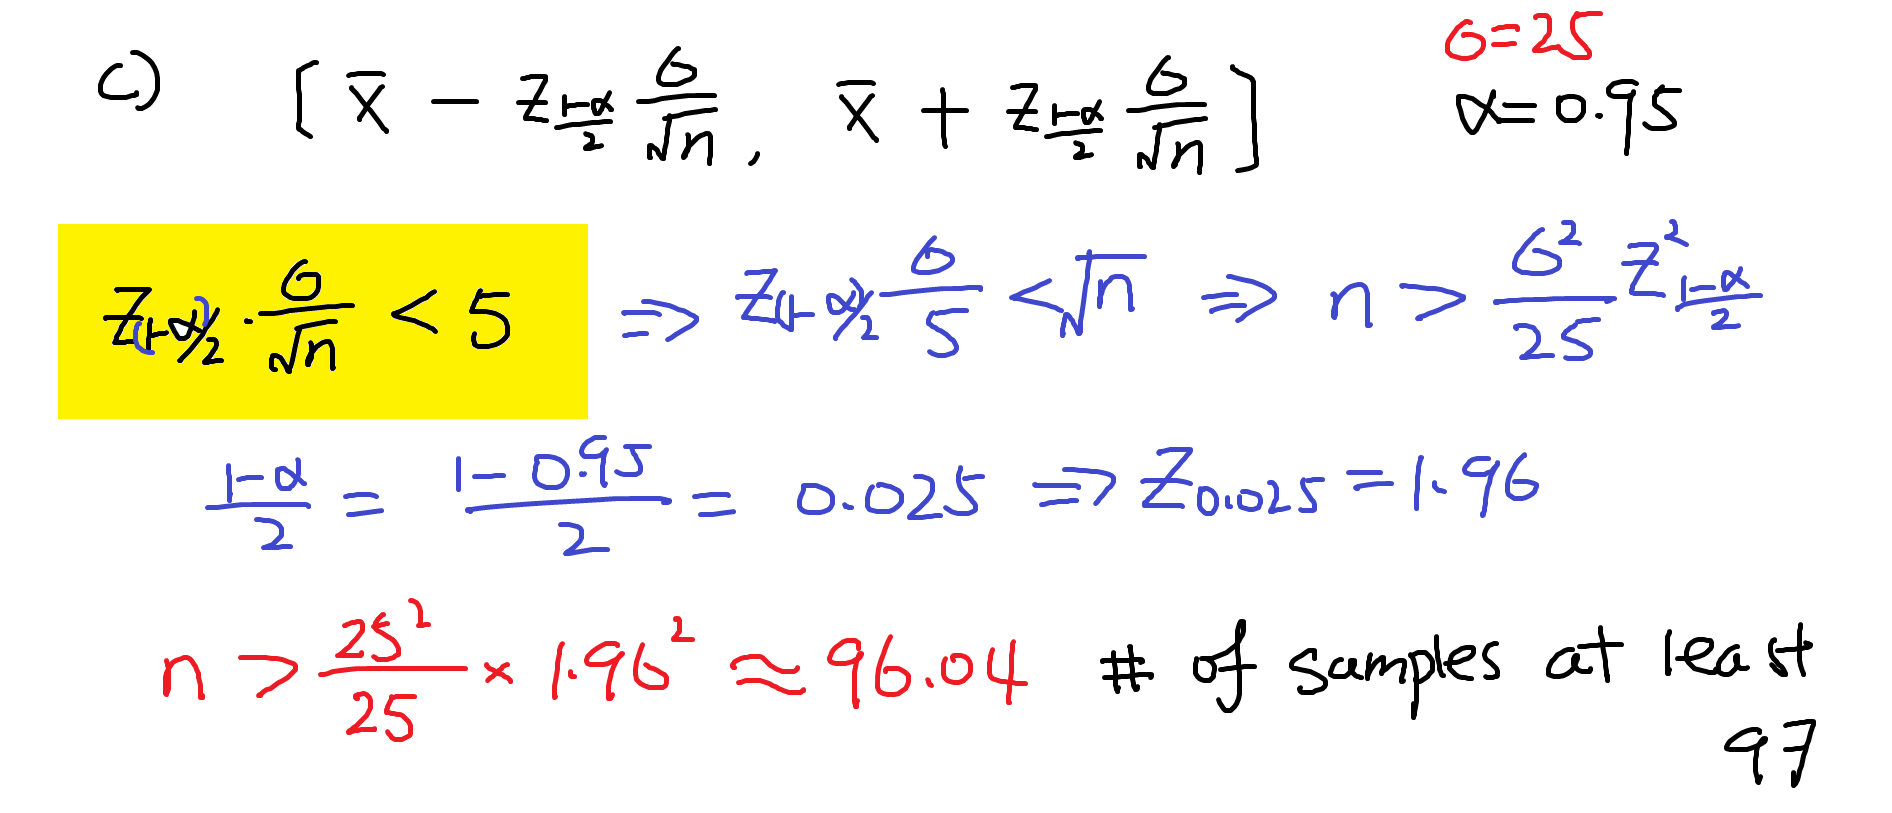 c) [ x̄ − z_{(1−α)/2} σ/√n , x̄ + z_{(1−α)/2} σ/√n ] σ=25
α=0.95
z_{(1−α)/2} · σ/√n < 5 ⇒ z_{(1−α)/2} σ/5 < √n ⇒ n > σ²/25 z²_{(1−α)/2}
(1−α)/2 = (1−0.95)/2 = 0.025 ⇒ z_{0.025} = 1.96
n > 25²/25 × 1.96² ≈ 96.04 # of samples at least
97